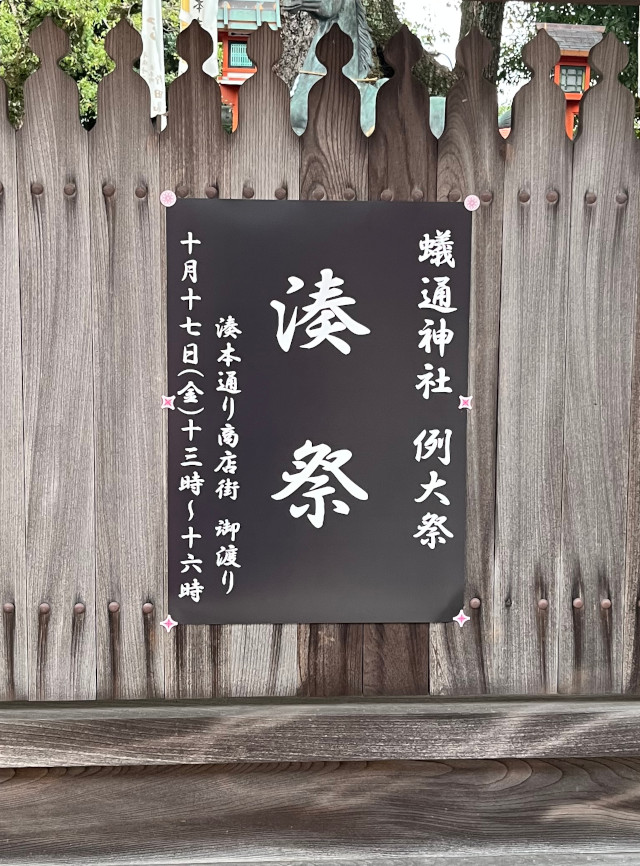 蟻通神社　例大祭
湊祭
湊本通り商店街　御渡り
十月十七日(金)十三時〜十六時